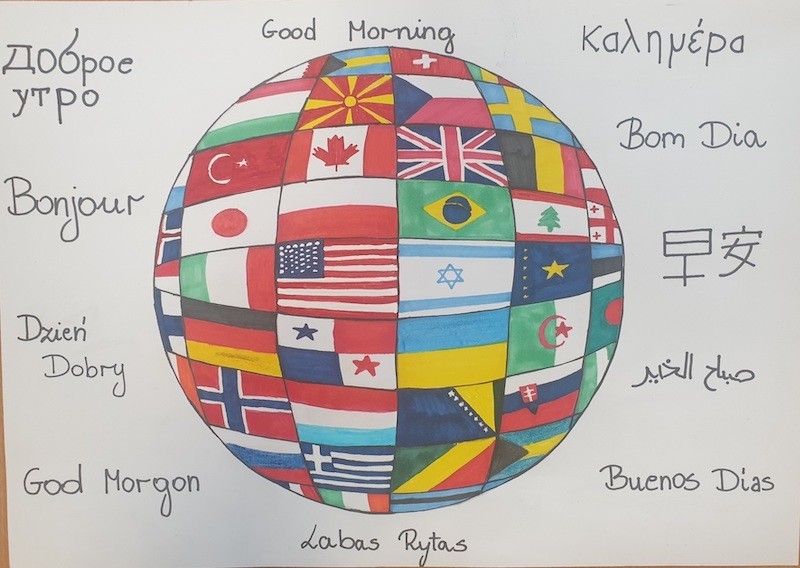 Good Morning
Доброе
утро
Καλημέρα
Bom Dia
Bonjour
早安
Dzień
Dobry
صباح الخير
God Morgon
Buenos Días
Labas Rytas